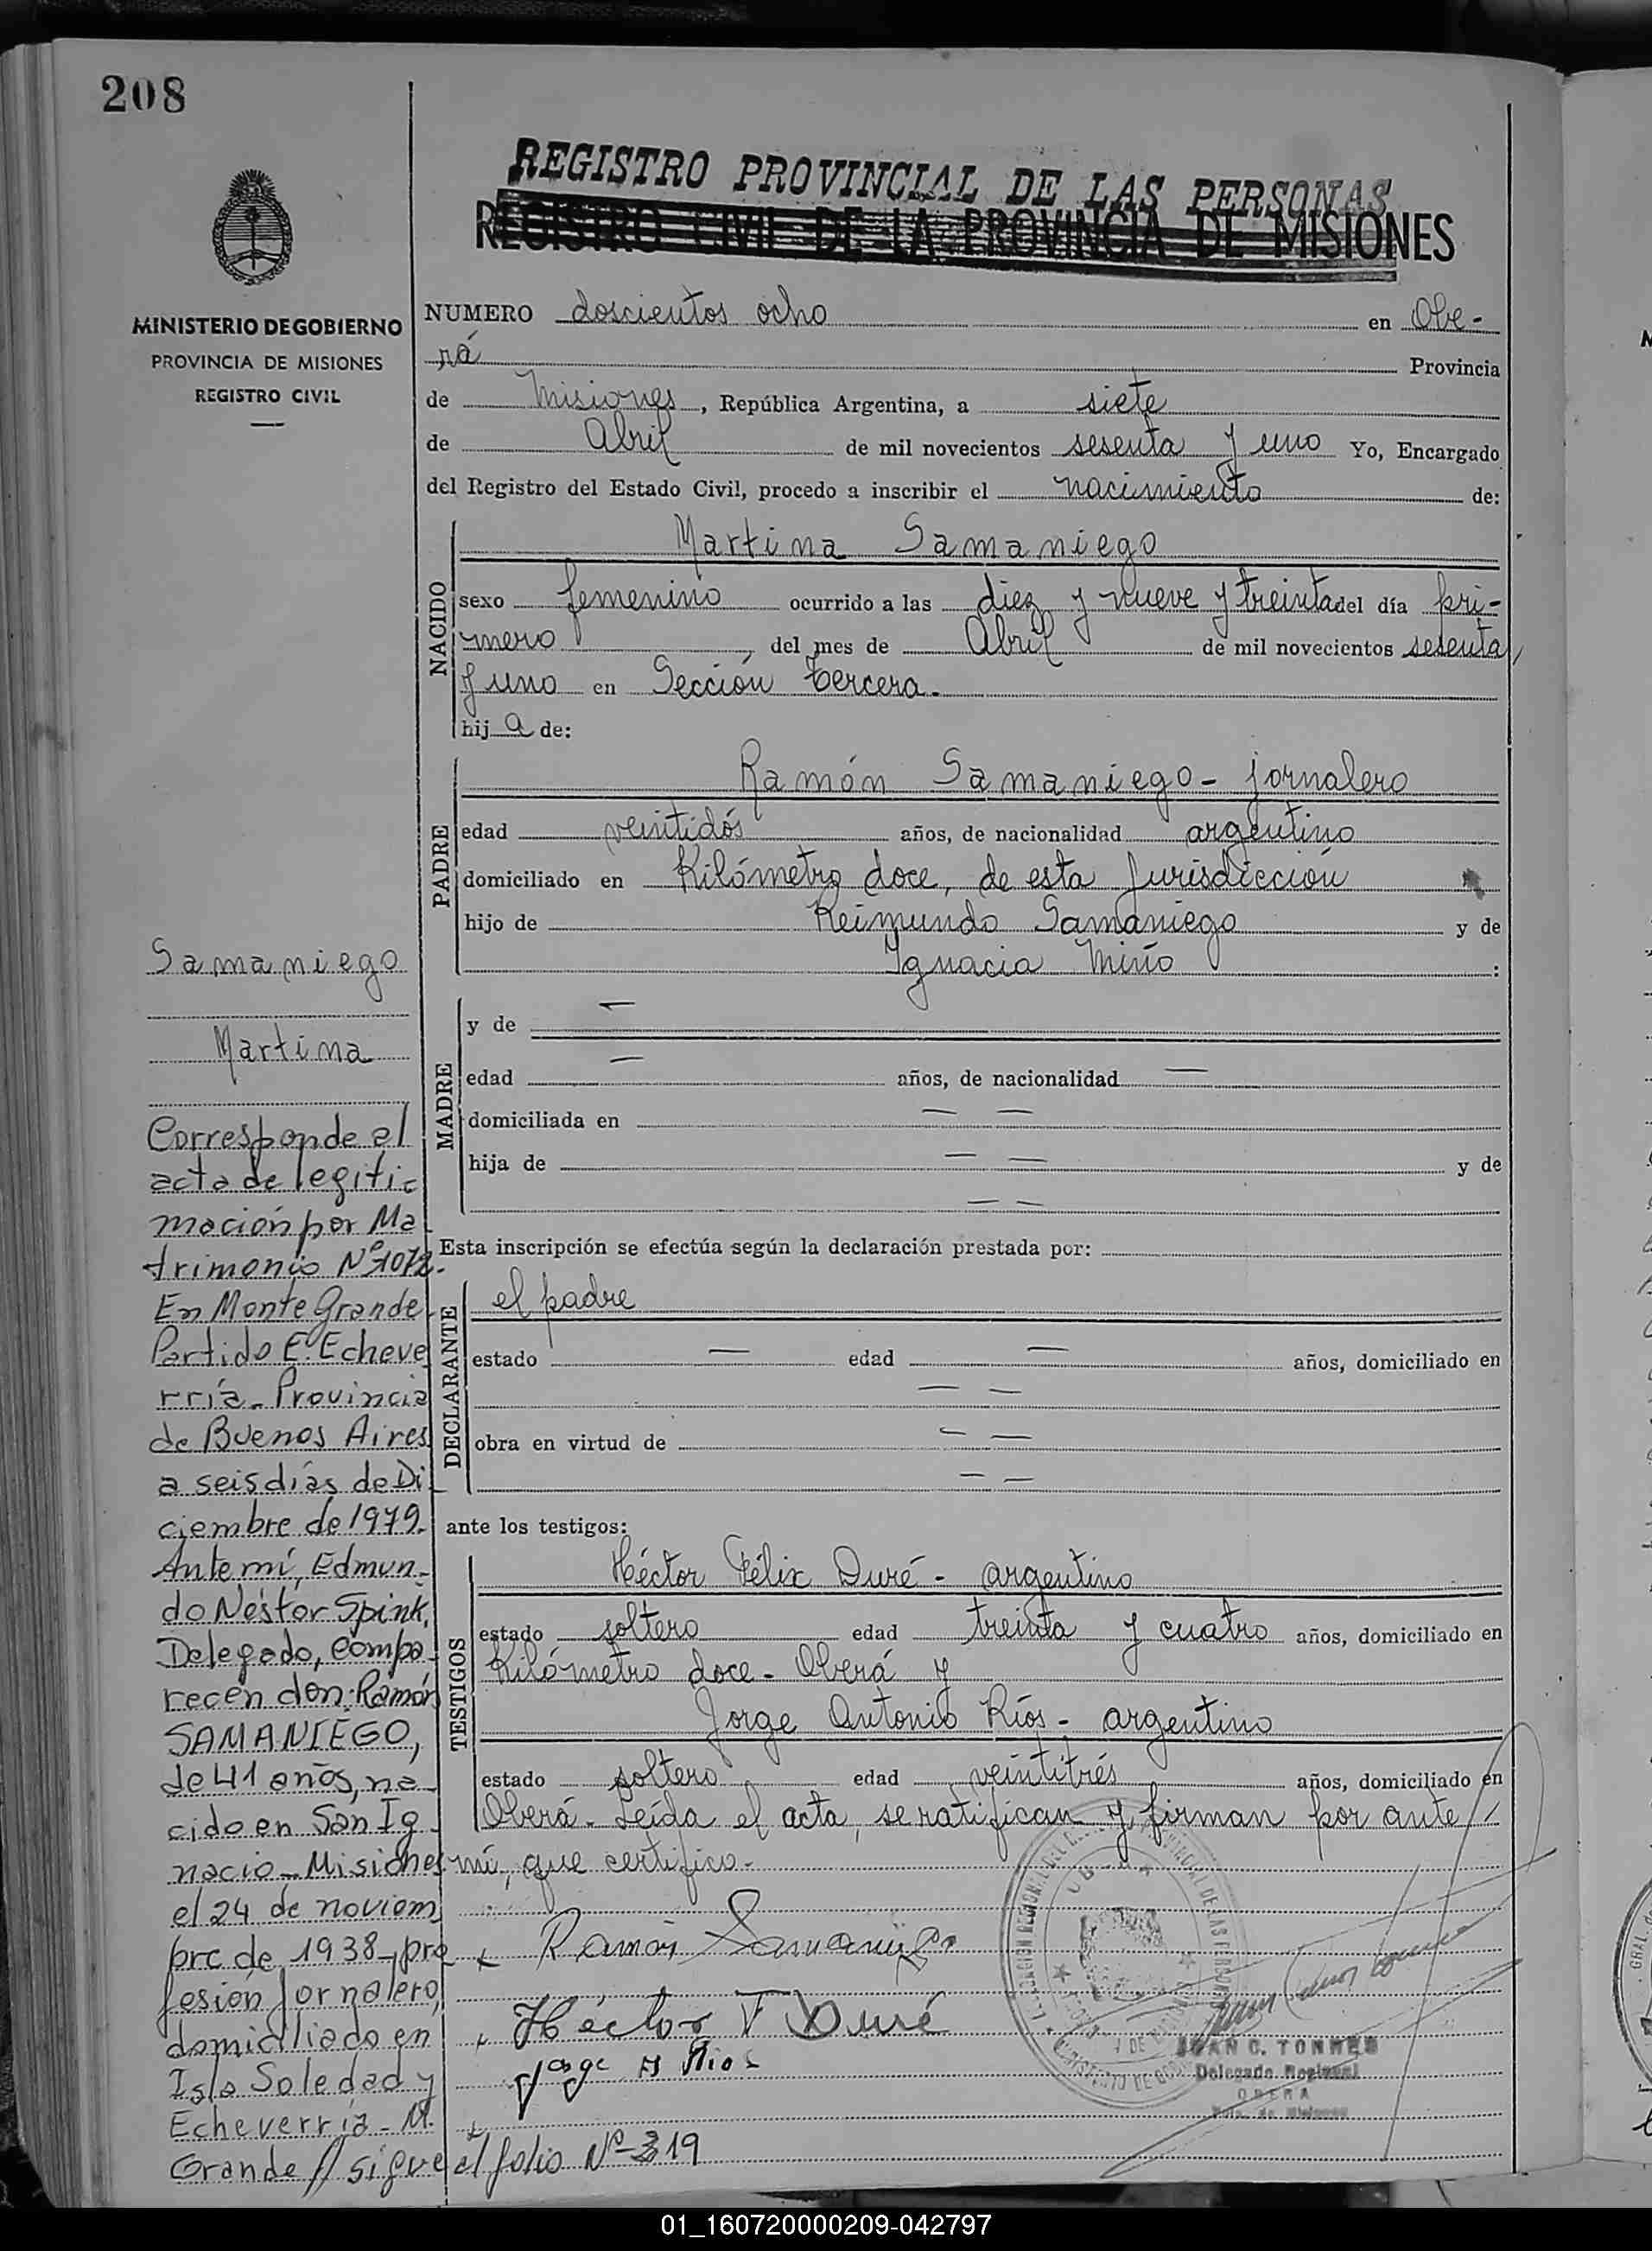 208
REGISTRO PROVINCIAL DE LAS PERSONAS
REGISTRO CIVIL DE LA PROVINCIA DE MISIONES
MINISTERIO DE GOBIERNO
PROVINCIA DE MISIONES
REGISTRO CIVIL
NUMERO doscientos ocho en Obe-
rá Provincia
de Misiones, República Argentina, a siete
de Abril de mil novecientos sesenta y uno Yo, Encargado
del Registro del Estado Civil, procedo a inscribir el nacimiento de:
NACIDO
Martina Samaniego
sexo femenino ocurrido a las diez y nueve y treinta del día pri-
mero, del mes de Abril de mil novecientos sesenta
y uno en Sección tercera.
hija de:
PADRE
Ramón Samaniego - jornalero
edad veintidós años, de nacionalidad argentino
domiciliado en Kilómetro doce, de esta Jurisdicción
hijo de Reimundo Samaniego y de
Ignacia Miño :
MADRE
y de —
edad — años, de nacionalidad —
domiciliada en — —
hija de — — y de
— —
Esta inscripción se efectúa según la declaración prestada por:
DECLARANTE
el padre
estado — edad — años, domiciliado en
— —
obra en virtud de — —
— —
ante los testigos:
TESTIGOS
Héctor Félix Duré - argentino
estado soltero edad treinta y cuatro años, domiciliado en
Kilómetro doce - Oberá y
Jorge Antonio Ríos - argentino
estado soltero edad veintitrés años, domiciliado en
Oberá. Leída el acta, se ratifican y firman por ante
mí, que certifico.
Ramón Samaniego
Héctor F Duré
Jorge A Rios
JUAN C. TORRES
Delegado Regional
OBERA
Pcia. de Misiones
Samaniego
Martina
Corresponde el
acta de legiti-
mación por Ma
trimonio Nº 1072.
En Monte Grande
Partido E. Echeve
rría. Provincia
de Buenos Aires
a seis días de Di
ciembre de 1979.
Ante mí, Edmun-
do Néstor Spink,
Delegado, compa-
recen don: Ramón
SAMANIEGO,
de 41 años, na-
cido en San Ig-
nacio - Misiones
el 24 de noviem
bre de 1938 - pro
fesión Jornalero,
domiciliado en
Isla Soledad y
Echeverría - M.
Grande // sigue el folio Nº 319
01_160720000209-042797